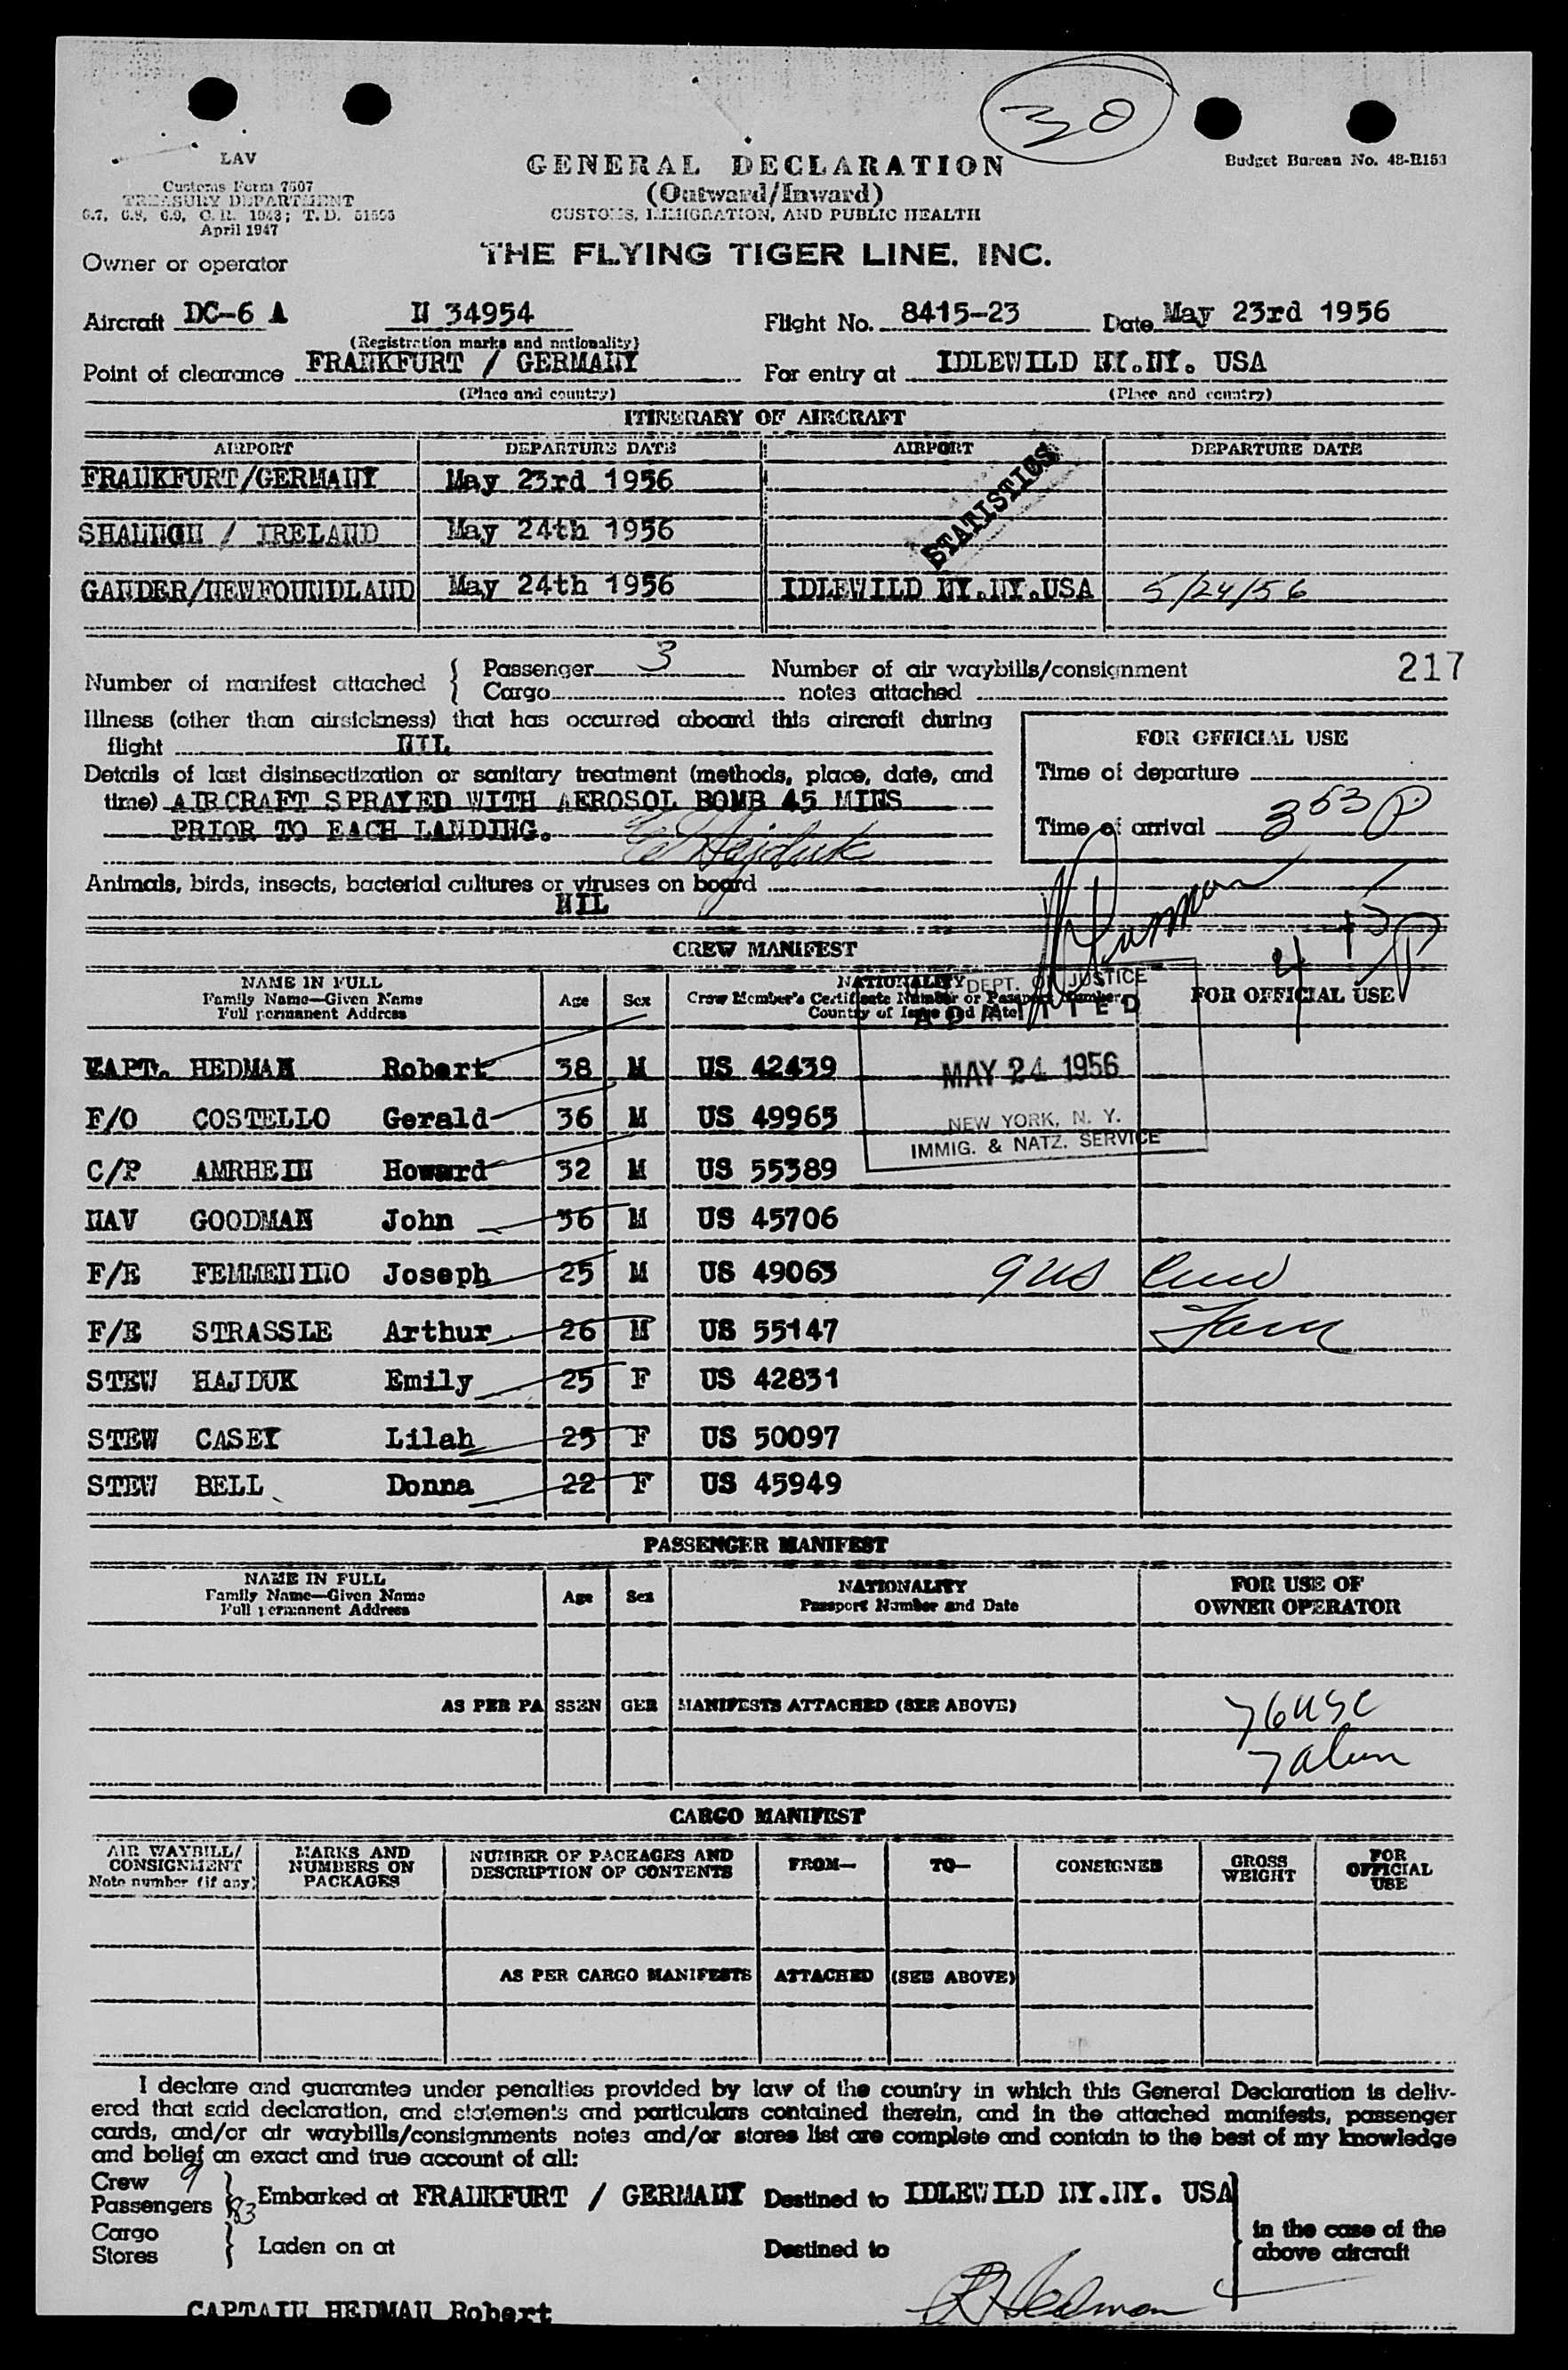 30
LAV
GENERAL DECLARATION
Budget Bureau No. 48-R153
Customs Form 7507
(Outward/Inward)
TREASURY DEPARTMENT
CUSTOMS, IMMIGRATION, AND PUBLIC HEALTH
6.7, 6.8, 6.9, C. R. 1943; T. D. 51595
April 1947
THE FLYING TIGER LINE. INC.
Owner or operator
Aircraft DC-6 A N 34954 Flight No. 8415-23 Date May 23rd 1956
(Registration marks and nationality)
Point of clearance FRANKFURT / GERMANY For entry at IDLEWILD NY.NY. USA
(Place and country) (Place and country)
ITINERARY OF AIRCRAFT
AIRPORT DEPARTURE DATE AIRPORT DEPARTURE DATE
FRANKFURT/GERMANY May 23rd 1956
STATISTICS
SHANNON / IRELAND May 24th 1956
GANDER/NEWFOUNDLAND May 24th 1956 IDLEWILD NY.NY.USA 5/24/56
Number of manifest attached { Passenger 3 Number of air waybills/consignment 217
Cargo notes attached
Illness (other than airsickness) that has occurred aboard this aircraft during
flight NIL
FOR OFFICIAL USE
Details of last disinsectization or sanitary treatment (methods, place, date, and
Time of departure
time) AIRCRAFT SPRAYED WITH AEROSOL BOMB 45 MINS
PRIOR TO EACH LANDING. Hajduk
Time of arrival 353 P
Animals, birds, insects, bacterial cultures or viruses on board
NIL
CREW MANIFEST
NAME IN FULL
Family Name—Given Name
Full permanent Address
Age Sex
NATIONALITY
Crew Member's Certificate Number or Passport Number
Country of Issue and Date
FOR OFFICIAL USE
DEPT. OF JUSTICE
ADMITTED
MAY 24 1956
NEW YORK, N. Y.
IMMIG. & NATZ. SERVICE
CAPT. HEDMAN Robert 38 M US 42439
F/O COSTELLO Gerald 36 M US 49965
C/P AMRHEIN Howard 32 M US 55389
NAV GOODMAN John 36 M US 45706
F/E FEMMENINO Joseph 25 M US 49063 9 US
F/E STRASSLE Arthur 26 M US 55147
STEW HAJDUK Emily 25 F US 42831
STEW CASEY Lilah 25 F US 50097
STEW BELL Donna 22 F US 45949
PASSENGER MANIFEST
NAME IN FULL
Family Name—Given Name
Full permanent Address
Age Sex
NATIONALITY
Passport Number and Date
FOR USE OF
OWNER OPERATOR
AS PER PASSENGER MANIFESTS ATTACHED (SEE ABOVE) 76 USC
7 alien
CARGO MANIFEST
AIR WAYBILL/
CONSIGNMENT
Note number (if any)
MARKS AND
NUMBERS ON
PACKAGES
NUMBER OF PACKAGES AND
DESCRIPTION OF CONTENTS
FROM— TO— CONSIGNEE
GROSS
WEIGHT
FOR
OFFICIAL
USE
AS PER CARGO MANIFESTS ATTACHED (SEE ABOVE)
I declare and guarantee under penalties provided by law of the country in which this General Declaration is deliv-
ered that said declaration, and statements and particulars contained therein, and in the attached manifests, passenger
cards, and/or air waybills/consignments notes and/or stores list are complete and contain to the best of my knowledge
and belief an exact and true account of all:
Crew 9
Passengers 83 } Embarked at FRANKFURT / GERMANY Destined to IDLEWILD NY.NY. USA
Cargo
Stores } Laden on at Destined to
in the case of the
above aircraft
CAPTAIN HEDMAN Robert R Hedman